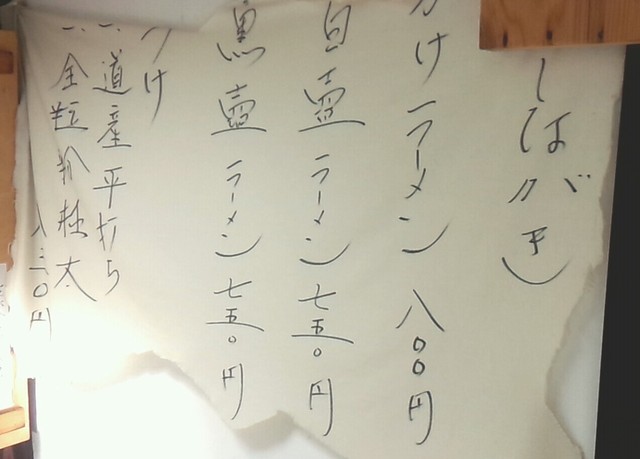 しばがき
けラーメン 八〇〇円
白壷ラーメン 七五〇円
黒壷ラーメン 七五〇円
つけ
一、道産平打ち
一、全粒粉極太
八三〇円